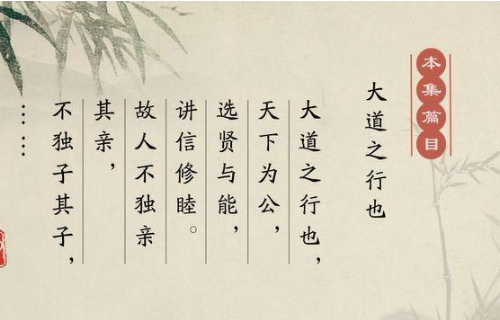 本集篇目
大道之行也
大道之行也，
天下为公，
选贤与能，
讲信修睦。
故人不独亲
其亲，
不独子其子，
……